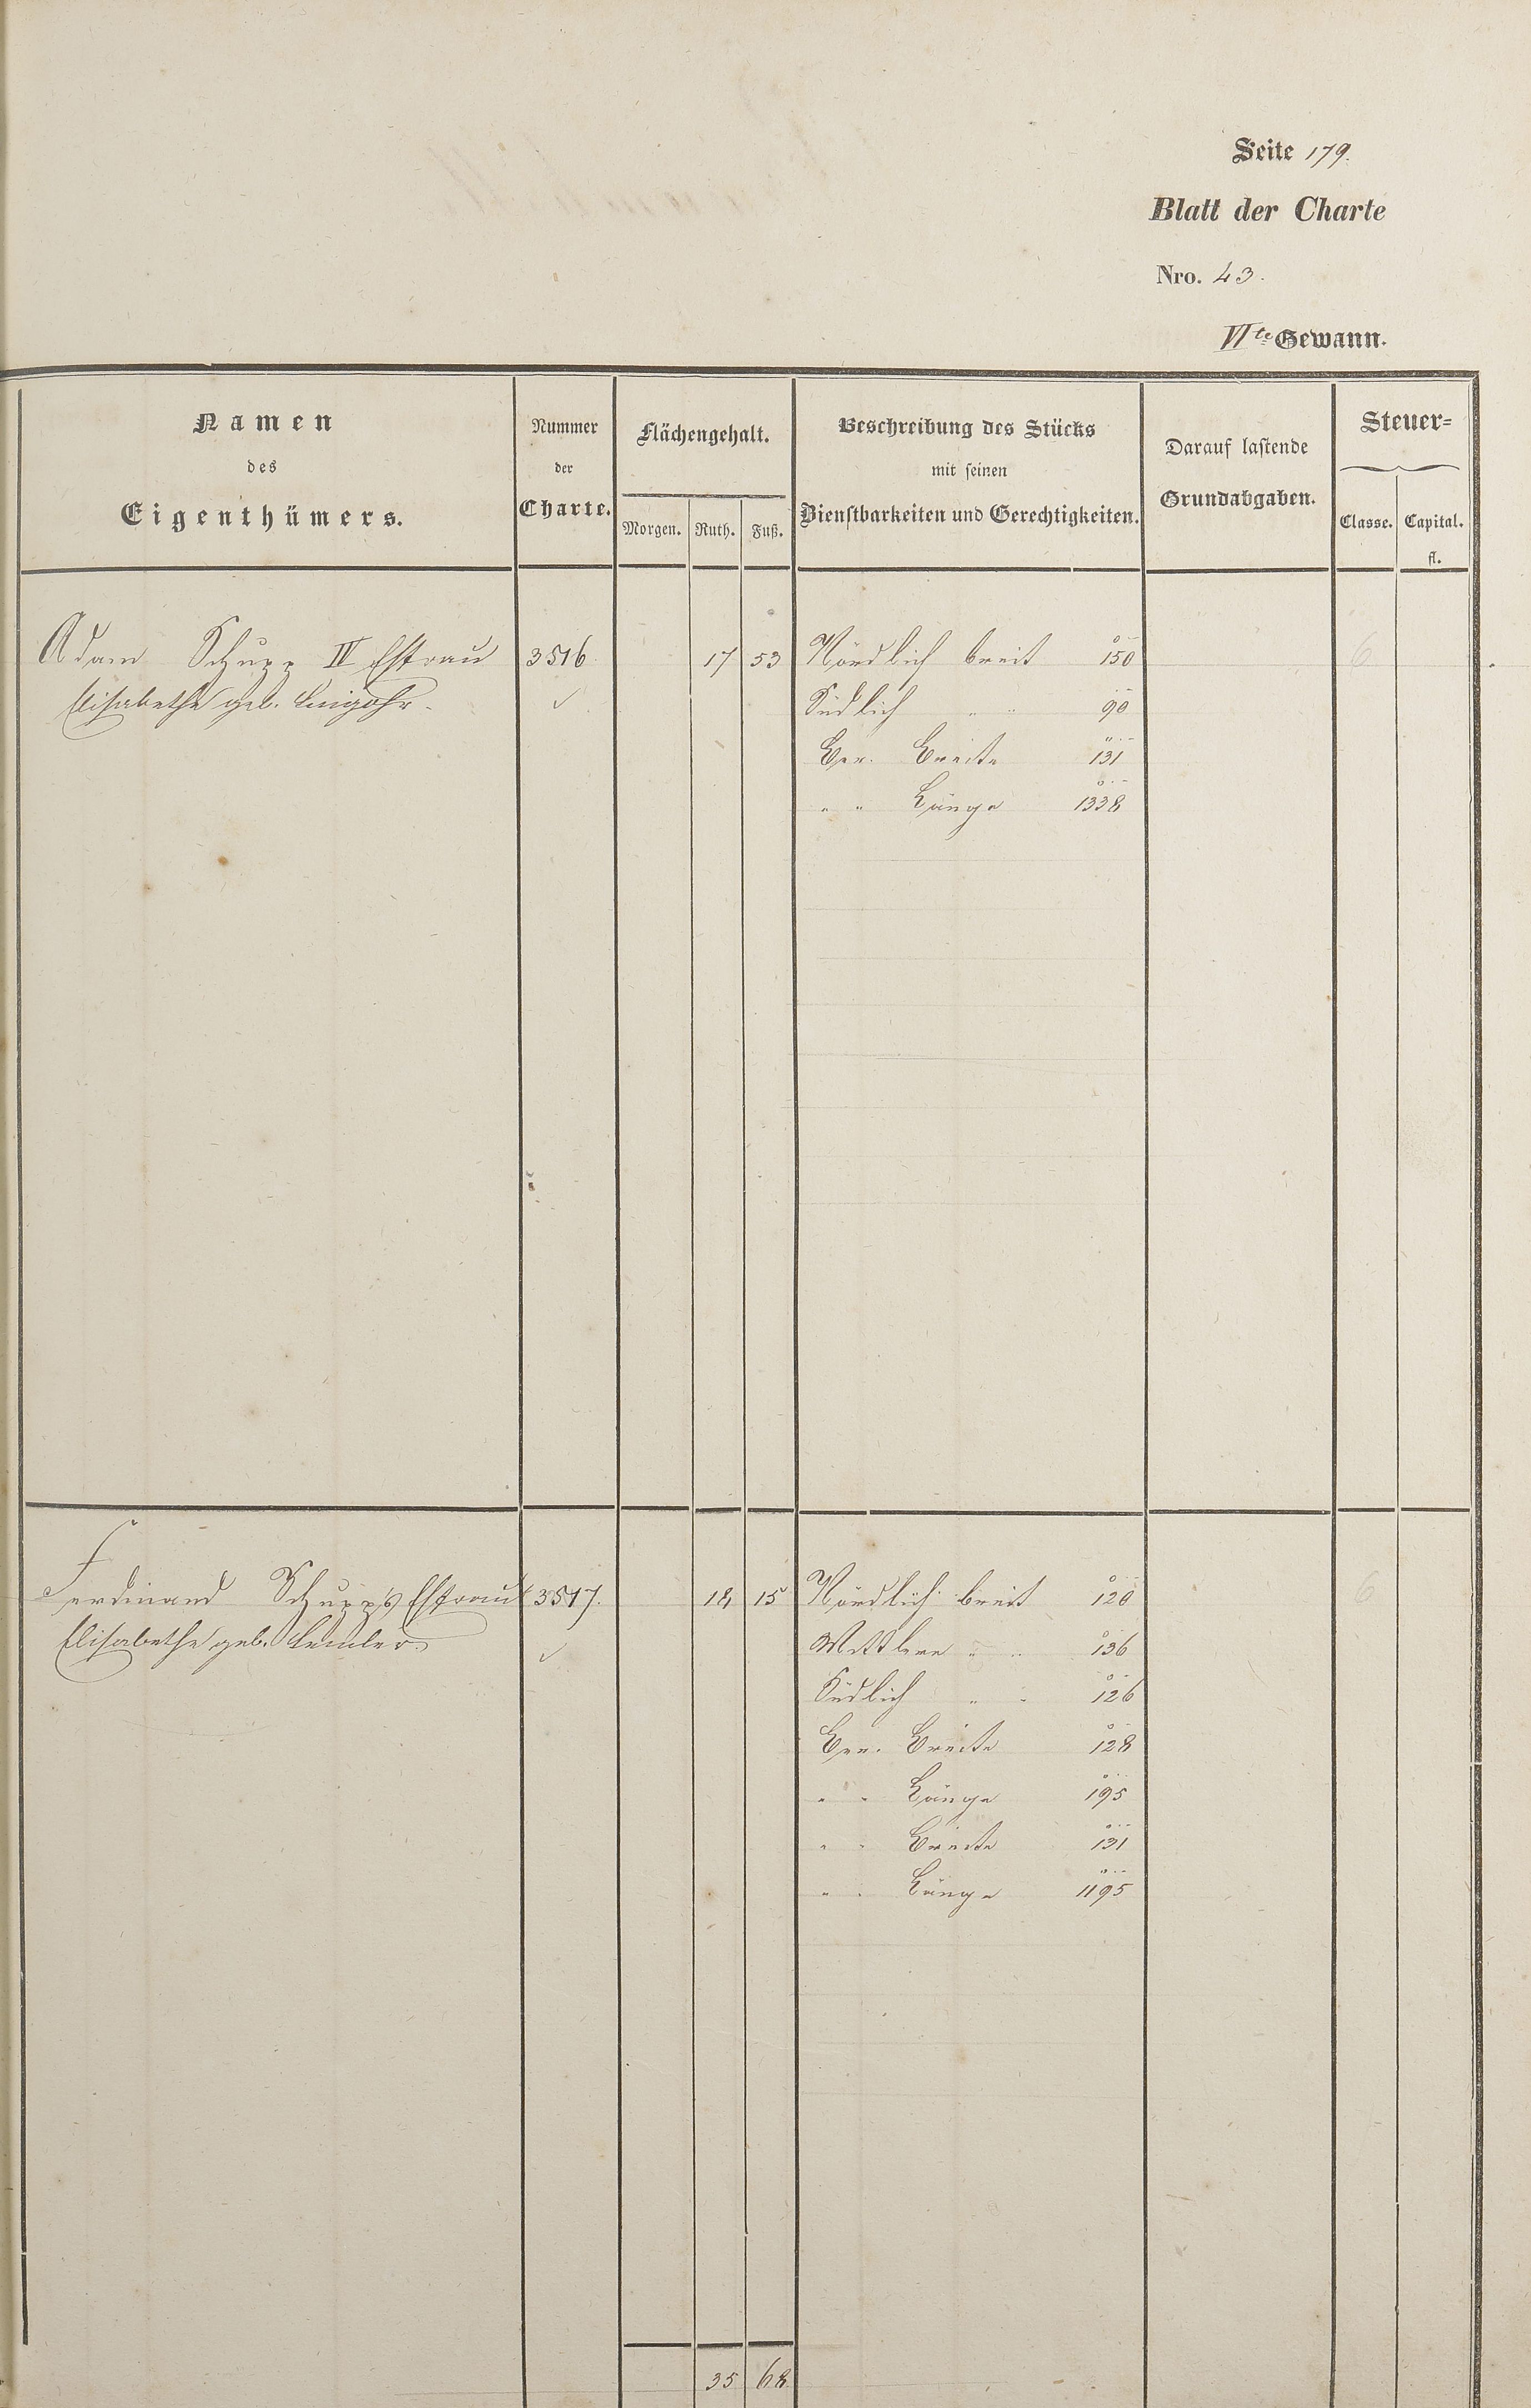 Seite 179.
Blatt der Charte
Nro. 43.
VI te Gewann.
Namen
des
Eigenthümers.
Nummer
der
Charte.
Flächengehalt.
Morgen. Ruth. Fuß.
Beschreibung des Stücks
mit seinen
Dienstbarkeiten und Gerechtigkeiten.
Darauf lastende
Grundabgaben.
Steuer=
Classe. Capital.
fl.
Adam Schupp IV Ehfrau 3516 17 53 Nördlich breit 150 6
Elisabethe geb. Lingohr. Südlich " " 90
Ger. Breite 131
" " Länge 1338
Ferdinand Schupp's Ehfrau 3517. 18 15 Nördlich breit 120 6
Elisabethe geb. Mittlere " " 136
Südlich " " 126
Ger. Breite 128
" " Länge 195
" " Breite 131
" " Länge 1195
35 68